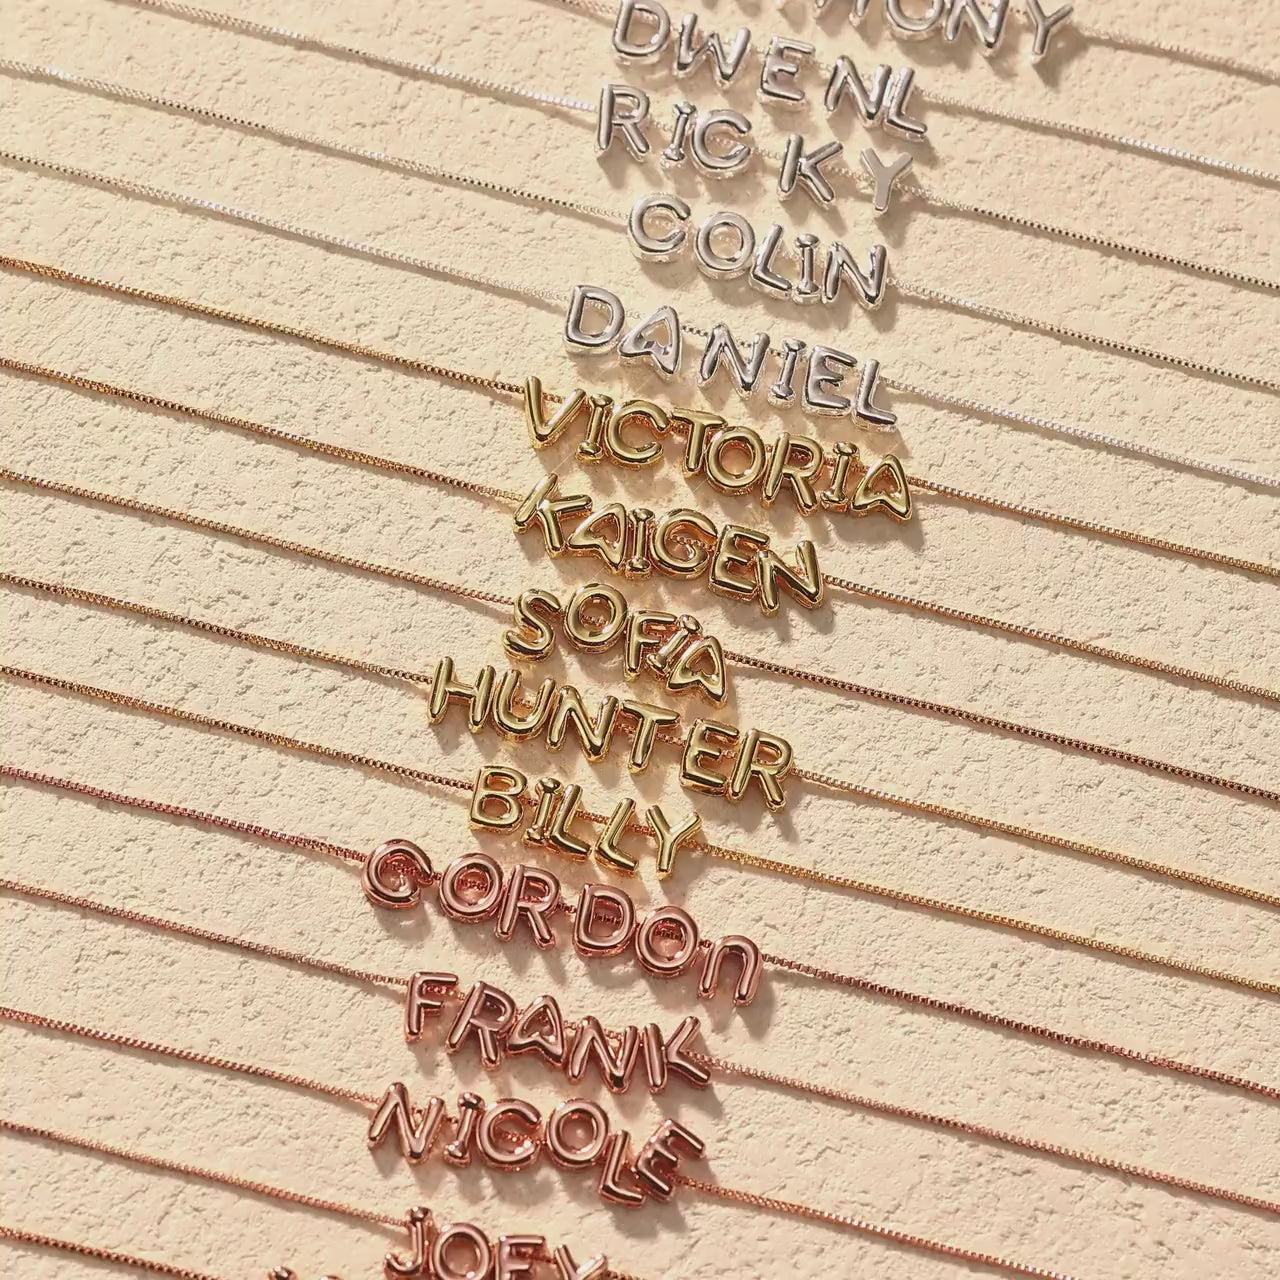 DWENL
RICKY
COLIN
DANIEL
VICTORIA
KAIGEN
SOFIA
HUNTER
BILLY
GORDON
FRANK
NICOLE
JOEY